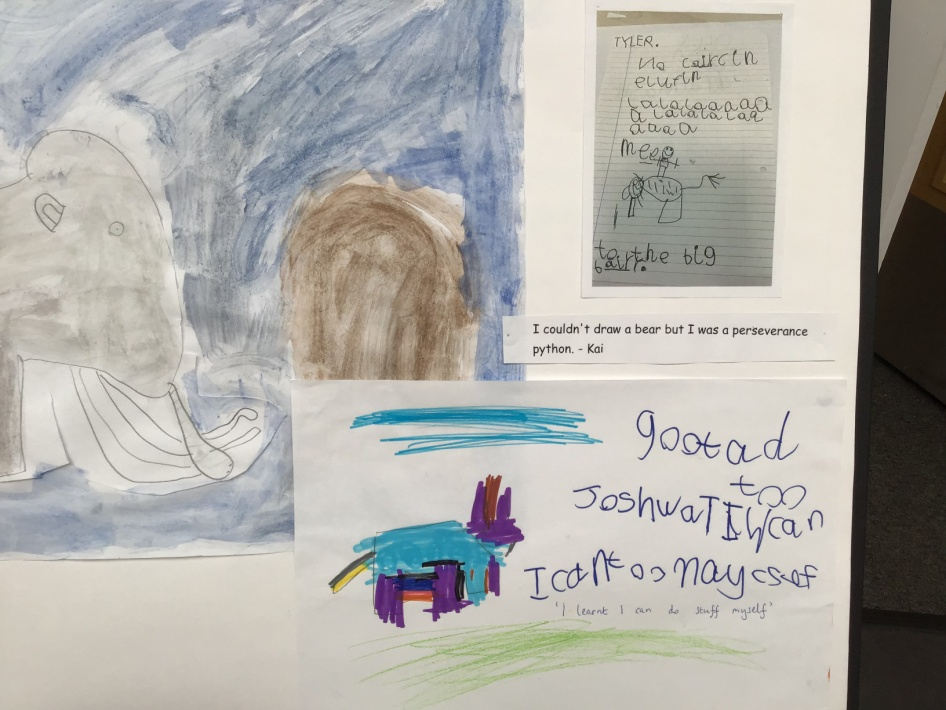 TYLER.
No caircln
elurin
Lalalaaaaa
a Lalalalaa
aaaa
Mee
to the big
bairr.
I couldn't draw a bear but I was a perseverance
python. - Kai
gootad
too
Joshwa
I can
'I learnt I can do stuff myself'